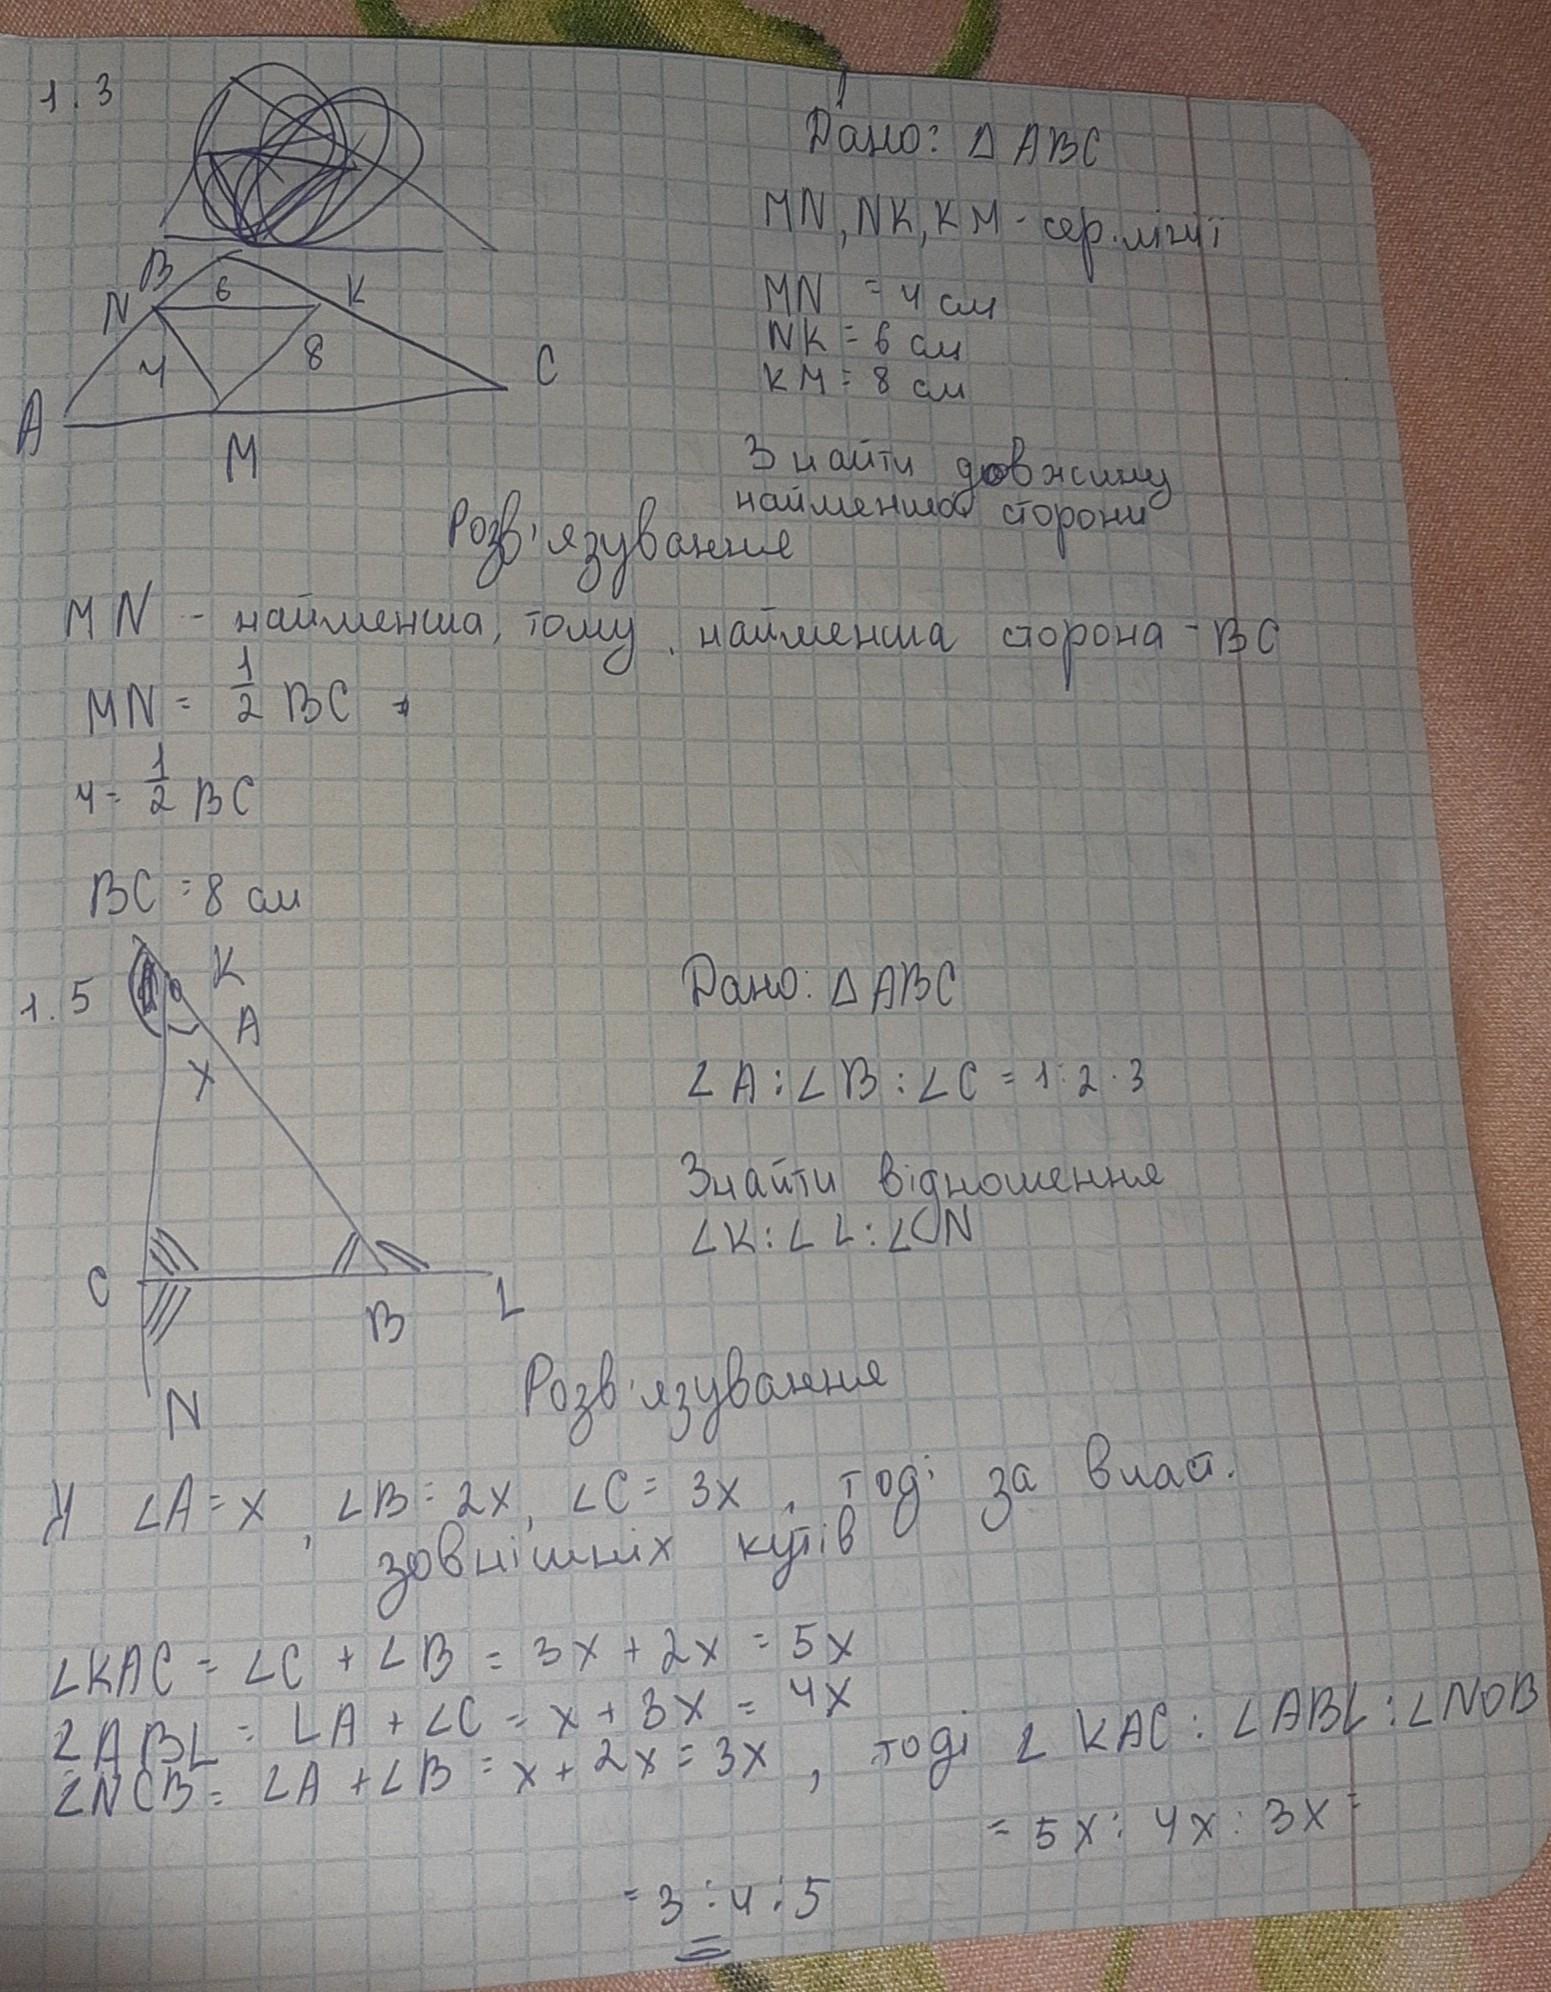 1.3
Дано: △ ABC
MN, NK, KM - сер. лінії
MN = 4 см
NK = 6 см
KM = 8 см
B
N
6
K
4
8
C
A
M
Знайти довжину
найменша сторони
Розв'язування
MN - найменша, тому, найменша сторона - BC
MN = 1/2 BC
4 = 1/2 BC
BC = 8 см
1.5
K
A
X
C
B
L
N
Дано: △ ABC
∠A : ∠B : ∠C = 1 : 2 : 3
Знайти відношення
∠K : ∠L : ∠N
Розв'язування
∠A = x, ∠B = 2x, ∠C = 3x, тоді за власт.
зовнішніх кутів
∠KAC = ∠C + ∠B = 3x + 2x = 5x
∠ABL = ∠A + ∠C = x + 3x = 4x
∠NCB = ∠A + ∠B = x + 2x = 3x, тоді ∠KAC : ∠ABL : ∠NCB
= 5x : 4x : 3x =
= 3 : 4 : 5